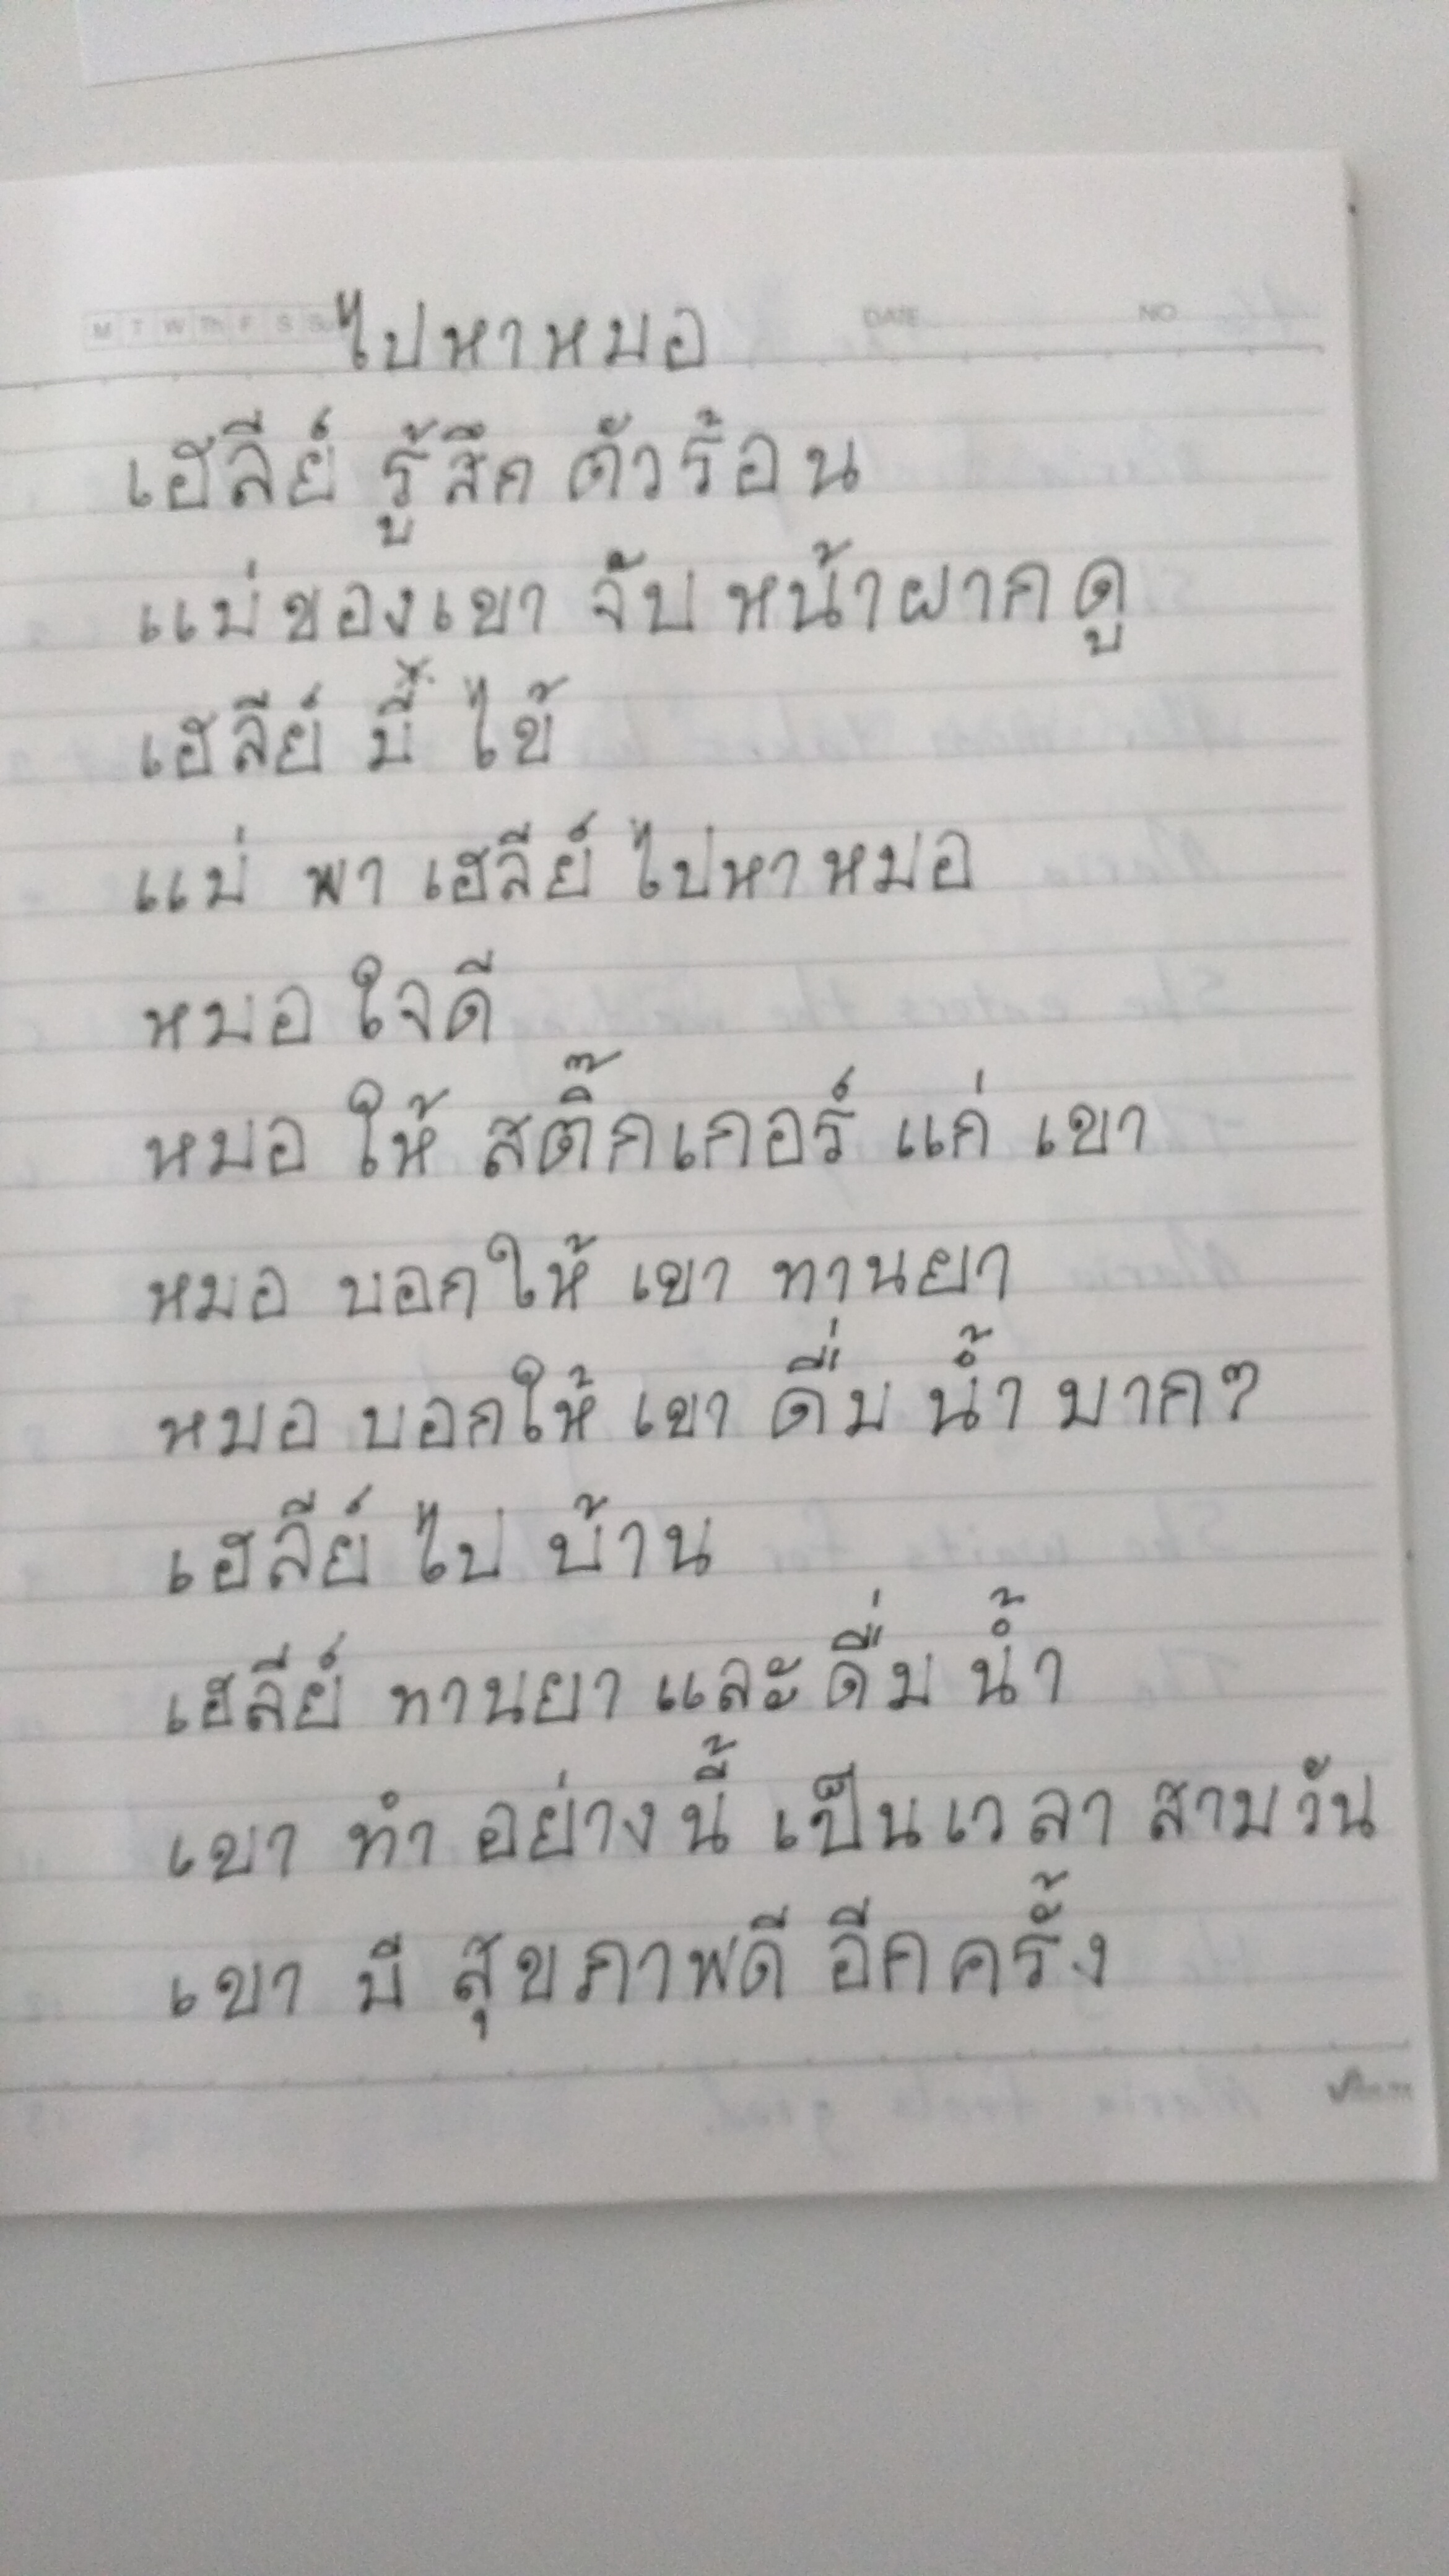 M T W Th F S Su DATE NO
ไปหาหมอ
เฮลีย์ รู้สึก ตัวร้อน
แม่ของเขา จับ หน้าผากดู
เฮลีย์ มี ไข้
แม่ พา เฮลีย์ ไปหาหมอ
หมอ ใจดี
หมอ ให้ สติ๊กเกอร์ แก่ เขา
หมอ บอกให้ เขา ทานยา
หมอ บอกให้ เขา ดื่ม น้ำ มากๆ
เฮลีย์ ไป บ้าน
เฮลีย์ ทานยา และดื่ม น้ำ
เขา ทำ อย่างนี้ เป็นเวลา สามวัน
เขา มี สุขภาพดี อีกครั้ง